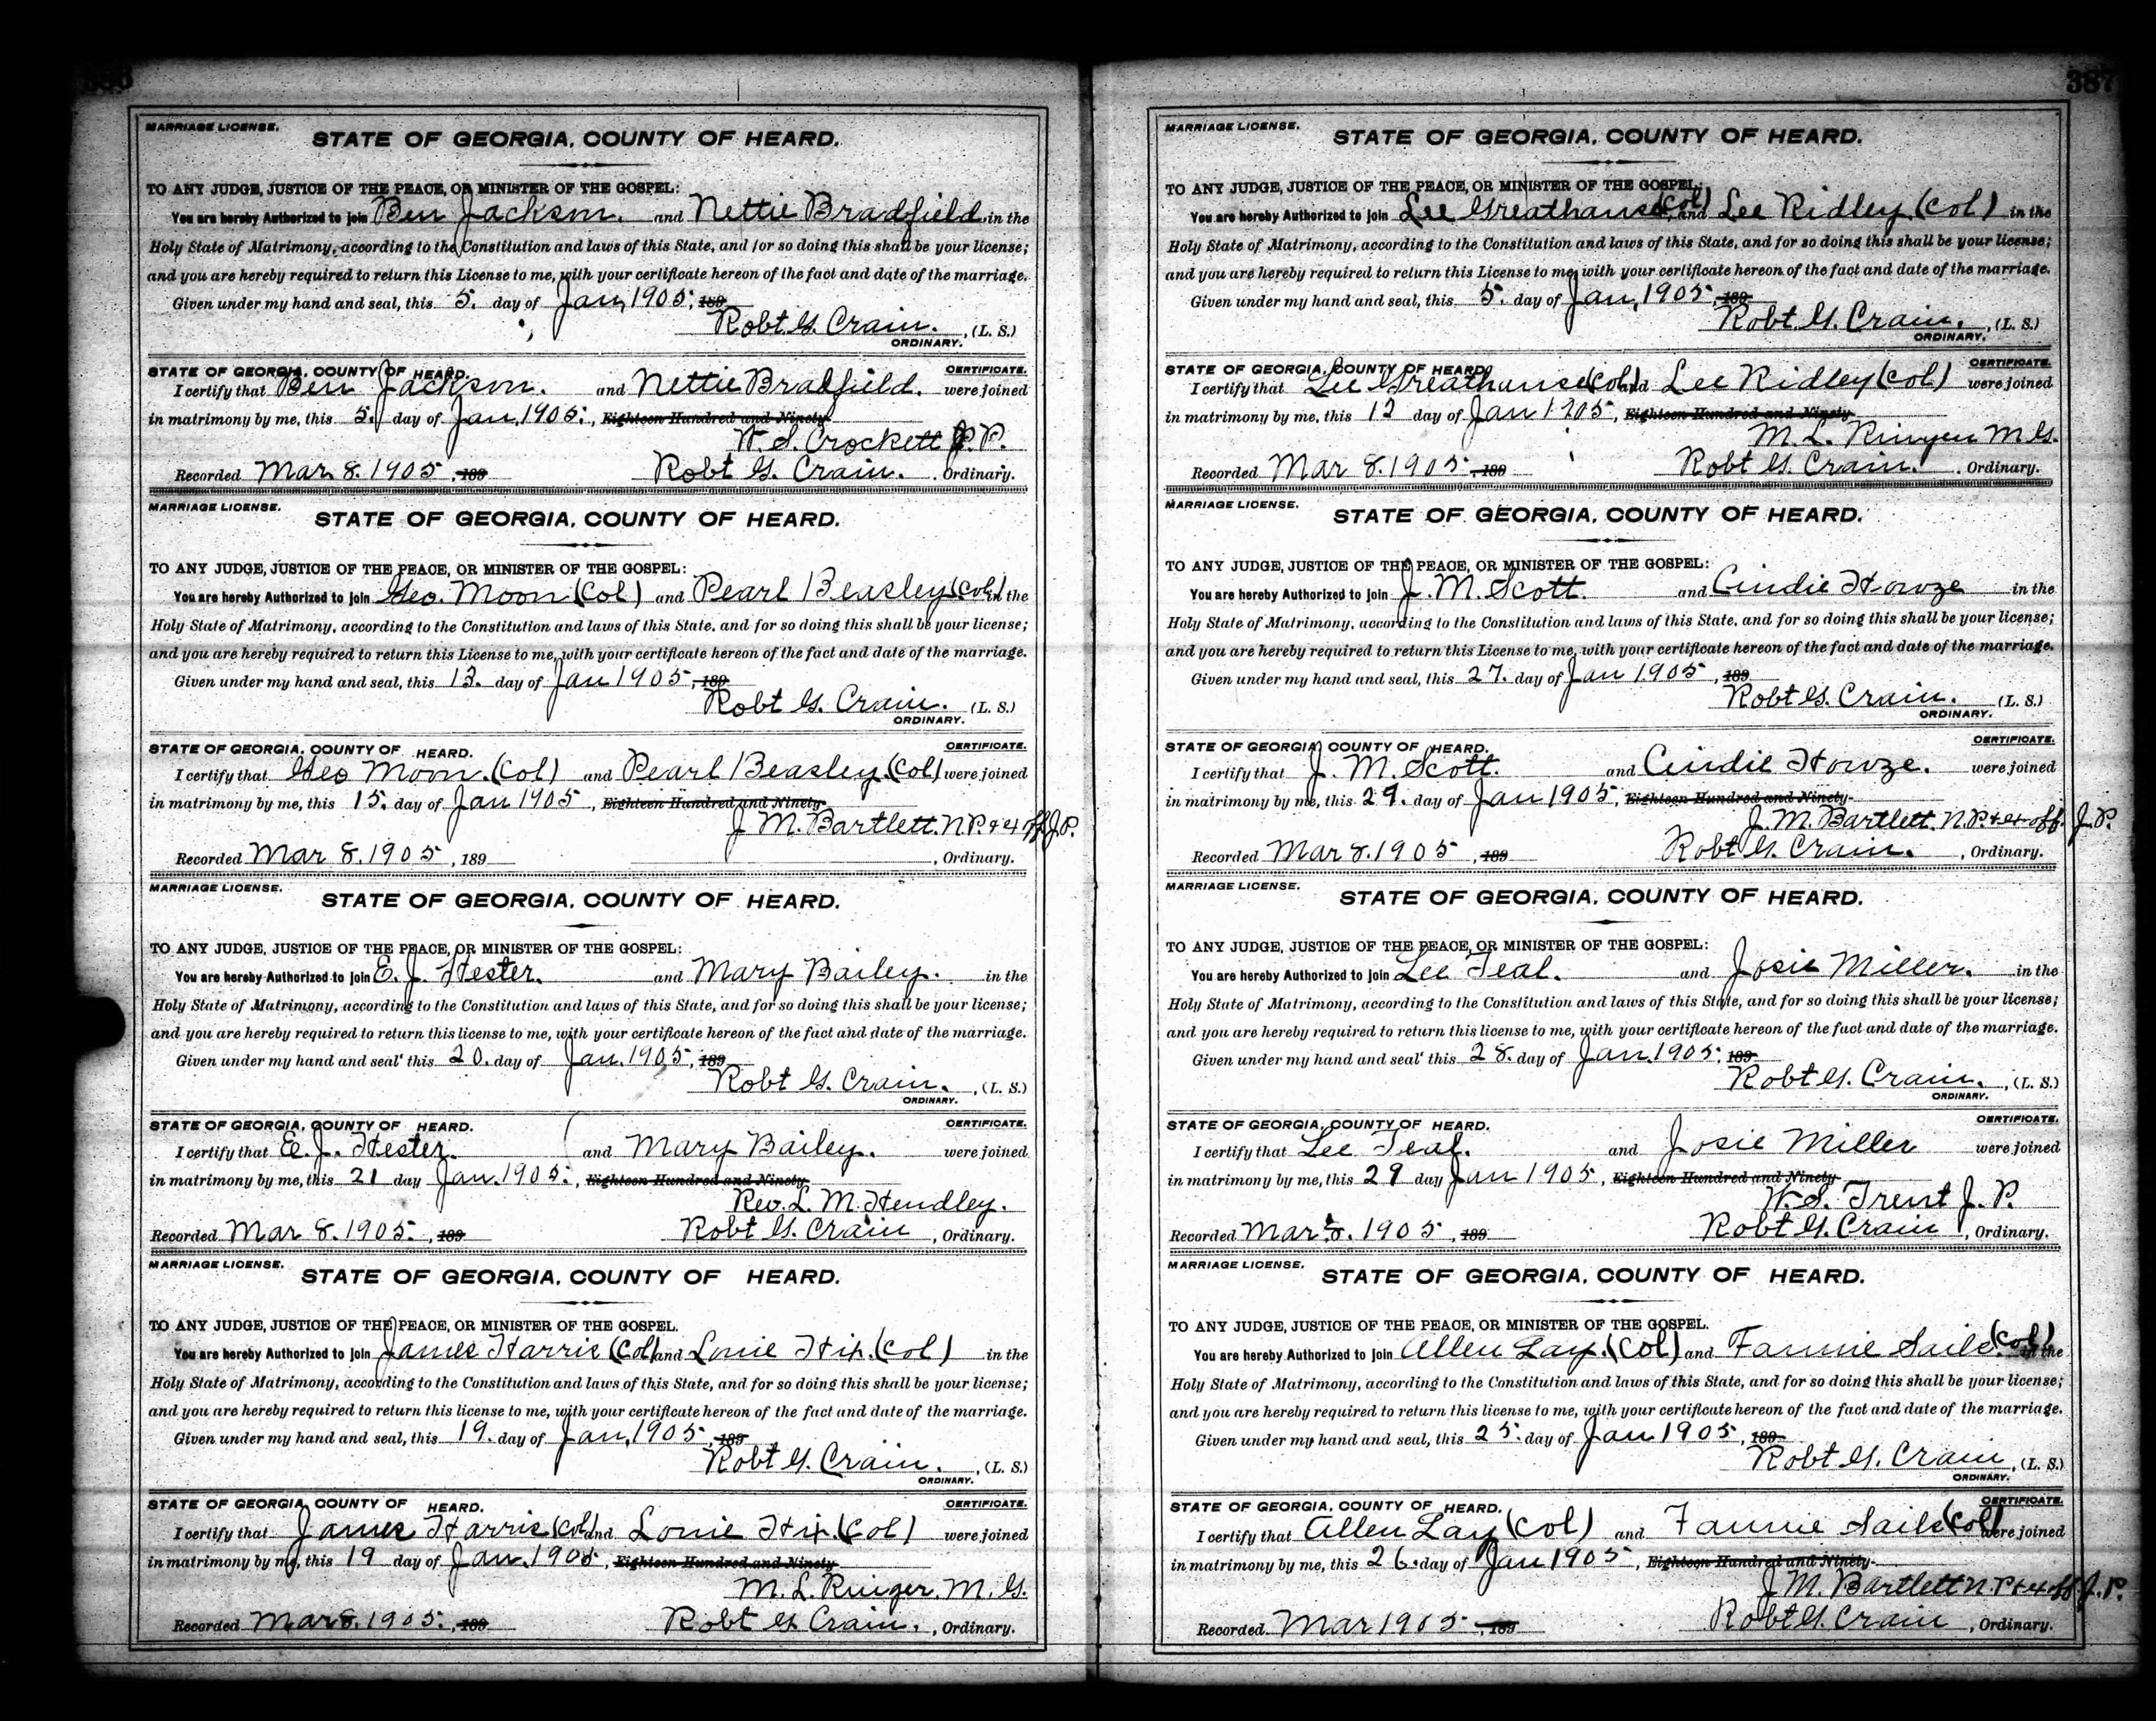 MARRIAGE LICENSE.
STATE OF GEORGIA, COUNTY OF HEARD.
TO ANY JUDGE, JUSTICE OF THE PEACE, OR MINISTER OF THE GOSPEL:
You are hereby Authorized to join Ben Jackson. and Nettie Bradfield in the
Holy State of Matrimony, according to the Constitution and laws of this State, and for so doing this shall be your license;
and you are hereby required to return this License to me, with your certificate hereon of the fact and date of the marriage.
Given under my hand and seal, this 5. day of Jan, 1905, 189
Robt. G. Crain. , (L. S.)
ORDINARY.
STATE OF GEORGIA, COUNTY OF HEARD. CERTIFICATE.
I certify that Ben Jackson. and Nettie Bradfield. were joined
in matrimony by me, this 5. day of Jan, 1905. , Eighteen Hundred and Ninety
W. S. Crockett J. P.
Recorded Mar. 8. 1905 , 189 Robt G. Crain. , Ordinary.
MARRIAGE LICENSE.
STATE OF GEORGIA, COUNTY OF HEARD.
TO ANY JUDGE, JUSTICE OF THE PEACE, OR MINISTER OF THE GOSPEL:
You are hereby Authorized to join Geo. Moon (Col) and Pearl Beasley (Col) in the
Holy State of Matrimony, according to the Constitution and laws of this State, and for so doing this shall be your license;
and you are hereby required to return this License to me, with your certificate hereon of the fact and date of the marriage.
Given under my hand and seal, this 13. day of Jan 1905, 189
Robt G. Crain. (L. S.)
ORDINARY.
STATE OF GEORGIA, COUNTY OF HEARD. CERTIFICATE.
I certify that Geo Moon. (Col) and Pearl Beasley. (Col) were joined
in matrimony by me, this 15. day of Jan 1905 , Eighteen Hundred and Ninety
J. M. Bartlett. N.P. & off J.P.
Recorded Mar 8. 1905 , 189 , Ordinary.
MARRIAGE LICENSE.
STATE OF GEORGIA, COUNTY OF HEARD.
TO ANY JUDGE, JUSTICE OF THE PEACE, OR MINISTER OF THE GOSPEL:
You are hereby Authorized to join E. J. Hester. and Mary Bailey. in the
Holy State of Matrimony, according to the Constitution and laws of this State, and for so doing this shall be your license;
and you are hereby required to return this license to me, with your certificate hereon of the fact and date of the marriage.
Given under my hand and seal this 20. day of Jan. 1905, 189
Robt G. Crain. , (L. S.)
ORDINARY.
STATE OF GEORGIA, COUNTY OF HEARD. CERTIFICATE.
I certify that E. J. Hester. and Mary Bailey. were joined
in matrimony by me, this 21 day Jan. 1905. , Eighteen Hundred and Ninety
Rev. L. M. Hendley.
Recorded Mar 8. 1905. , 189 Robt G. Crain , Ordinary.
MARRIAGE LICENSE.
STATE OF GEORGIA, COUNTY OF HEARD.
TO ANY JUDGE, JUSTICE OF THE PEACE, OR MINISTER OF THE GOSPEL.
You are hereby Authorized to join James Harris (Col) and Lonie Hix. (Col) in the
Holy State of Matrimony, according to the Constitution and laws of this State, and for so doing this shall be your license;
and you are hereby required to return this license to me, with your certificate hereon of the fact and date of the marriage.
Given under my hand and seal, this 19. day of Jan, 1905 , 189
Robt G. Crain. , (L. S.)
ORDINARY.
STATE OF GEORGIA, COUNTY OF HEARD. CERTIFICATE.
I certify that James Harris (Col) and Lonie Hix. (Col) were joined
in matrimony by me, this 19 day of Jan. 1905 , Eighteen Hundred and Ninety
M. L. M. G.
Recorded Mar 8. 1905. , 189 Robt G. Crain. , Ordinary.
387
MARRIAGE LICENSE.
STATE OF GEORGIA, COUNTY OF HEARD.
TO ANY JUDGE, JUSTICE OF THE PEACE, OR MINISTER OF THE GOSPEL:
You are hereby Authorized to join Lee Greathouse (Col) and Lee Ridley. (Col) in the
Holy State of Matrimony, according to the Constitution and laws of this State, and for so doing this shall be your license;
and you are hereby required to return this License to me, with your certificate hereon of the fact and date of the marriage.
Given under my hand and seal, this 5. day of Jan, 1905 , 189
Robt. G. Crain. , (L. S.)
ORDINARY.
STATE OF GEORGIA, COUNTY OF HEARD. CERTIFICATE.
I certify that Lee Greathouse (Col) and Lee Ridley (Col) were joined
in matrimony by me, this 12 day of Jan 1905 , Eighteen Hundred and Ninety
M. L. M. G.
Recorded Mar 8. 1905 , 189 Robt G. Crain. , Ordinary.
MARRIAGE LICENSE.
STATE OF GEORGIA, COUNTY OF HEARD.
TO ANY JUDGE, JUSTICE OF THE PEACE, OR MINISTER OF THE GOSPEL:
You are hereby Authorized to join J. M. Scott. and Cindie Howze in the
Holy State of Matrimony, according to the Constitution and laws of this State, and for so doing this shall be your license;
and you are hereby required to return this License to me, with your certificate hereon of the fact and date of the marriage.
Given under my hand and seal, this 27. day of Jan 1905 , 189
Robt G. Crain. (L. S.)
ORDINARY.
STATE OF GEORGIA, COUNTY OF HEARD. CERTIFICATE.
I certify that J. M. Scott. and Cindie Howze. were joined
in matrimony by me, this 29. day of Jan 1905 , Eighteen Hundred and Ninety
J. M. Bartlett. N.P. & off. J. P.
Recorded Mar 8. 1905 , 189 Robt G. Crain. , Ordinary.
MARRIAGE LICENSE.
STATE OF GEORGIA, COUNTY OF HEARD.
TO ANY JUDGE, JUSTICE OF THE PEACE, OR MINISTER OF THE GOSPEL:
You are hereby Authorized to join Lee Teal. and Josie Miller. in the
Holy State of Matrimony, according to the Constitution and laws of this State, and for so doing this shall be your license;
and you are hereby required to return this license to me, with your certificate hereon of the fact and date of the marriage.
Given under my hand and seal this 28. day of Jan. 1905, 189
Robt G. Crain. , (L. S.)
ORDINARY.
STATE OF GEORGIA, COUNTY OF HEARD. CERTIFICATE.
I certify that Lee Teal. and Josie Miller were joined
in matrimony by me, this 29 day Jan 1905 , Eighteen Hundred and Ninety
W. S. Trent J. P.
Recorded Mar 8. 1905 , 189 Robt G. Crain , Ordinary.
MARRIAGE LICENSE.
STATE OF GEORGIA, COUNTY OF HEARD.
TO ANY JUDGE, JUSTICE OF THE PEACE, OR MINISTER OF THE GOSPEL.
You are hereby Authorized to join Allen Lay. (Col) and Fannie Sails (Col) in the
Holy State of Matrimony, according to the Constitution and laws of this State, and for so doing this shall be your license;
and you are hereby required to return this license to me, with your certificate hereon of the fact and date of the marriage.
Given under my hand and seal, this 25. day of Jan 1905 , 189
Robt G. Crain , (L. S.)
ORDINARY.
STATE OF GEORGIA, COUNTY OF HEARD. CERTIFICATE.
I certify that Allen Lay (Col) and Fannie Sails (Col) were joined
in matrimony by me, this 26. day of Jan 1905 , Eighteen Hundred and Ninety
J. M. Bartlett N. P. & off J. P.
Recorded Mar 1905 , 189 Robt G. Crain , Ordinary.